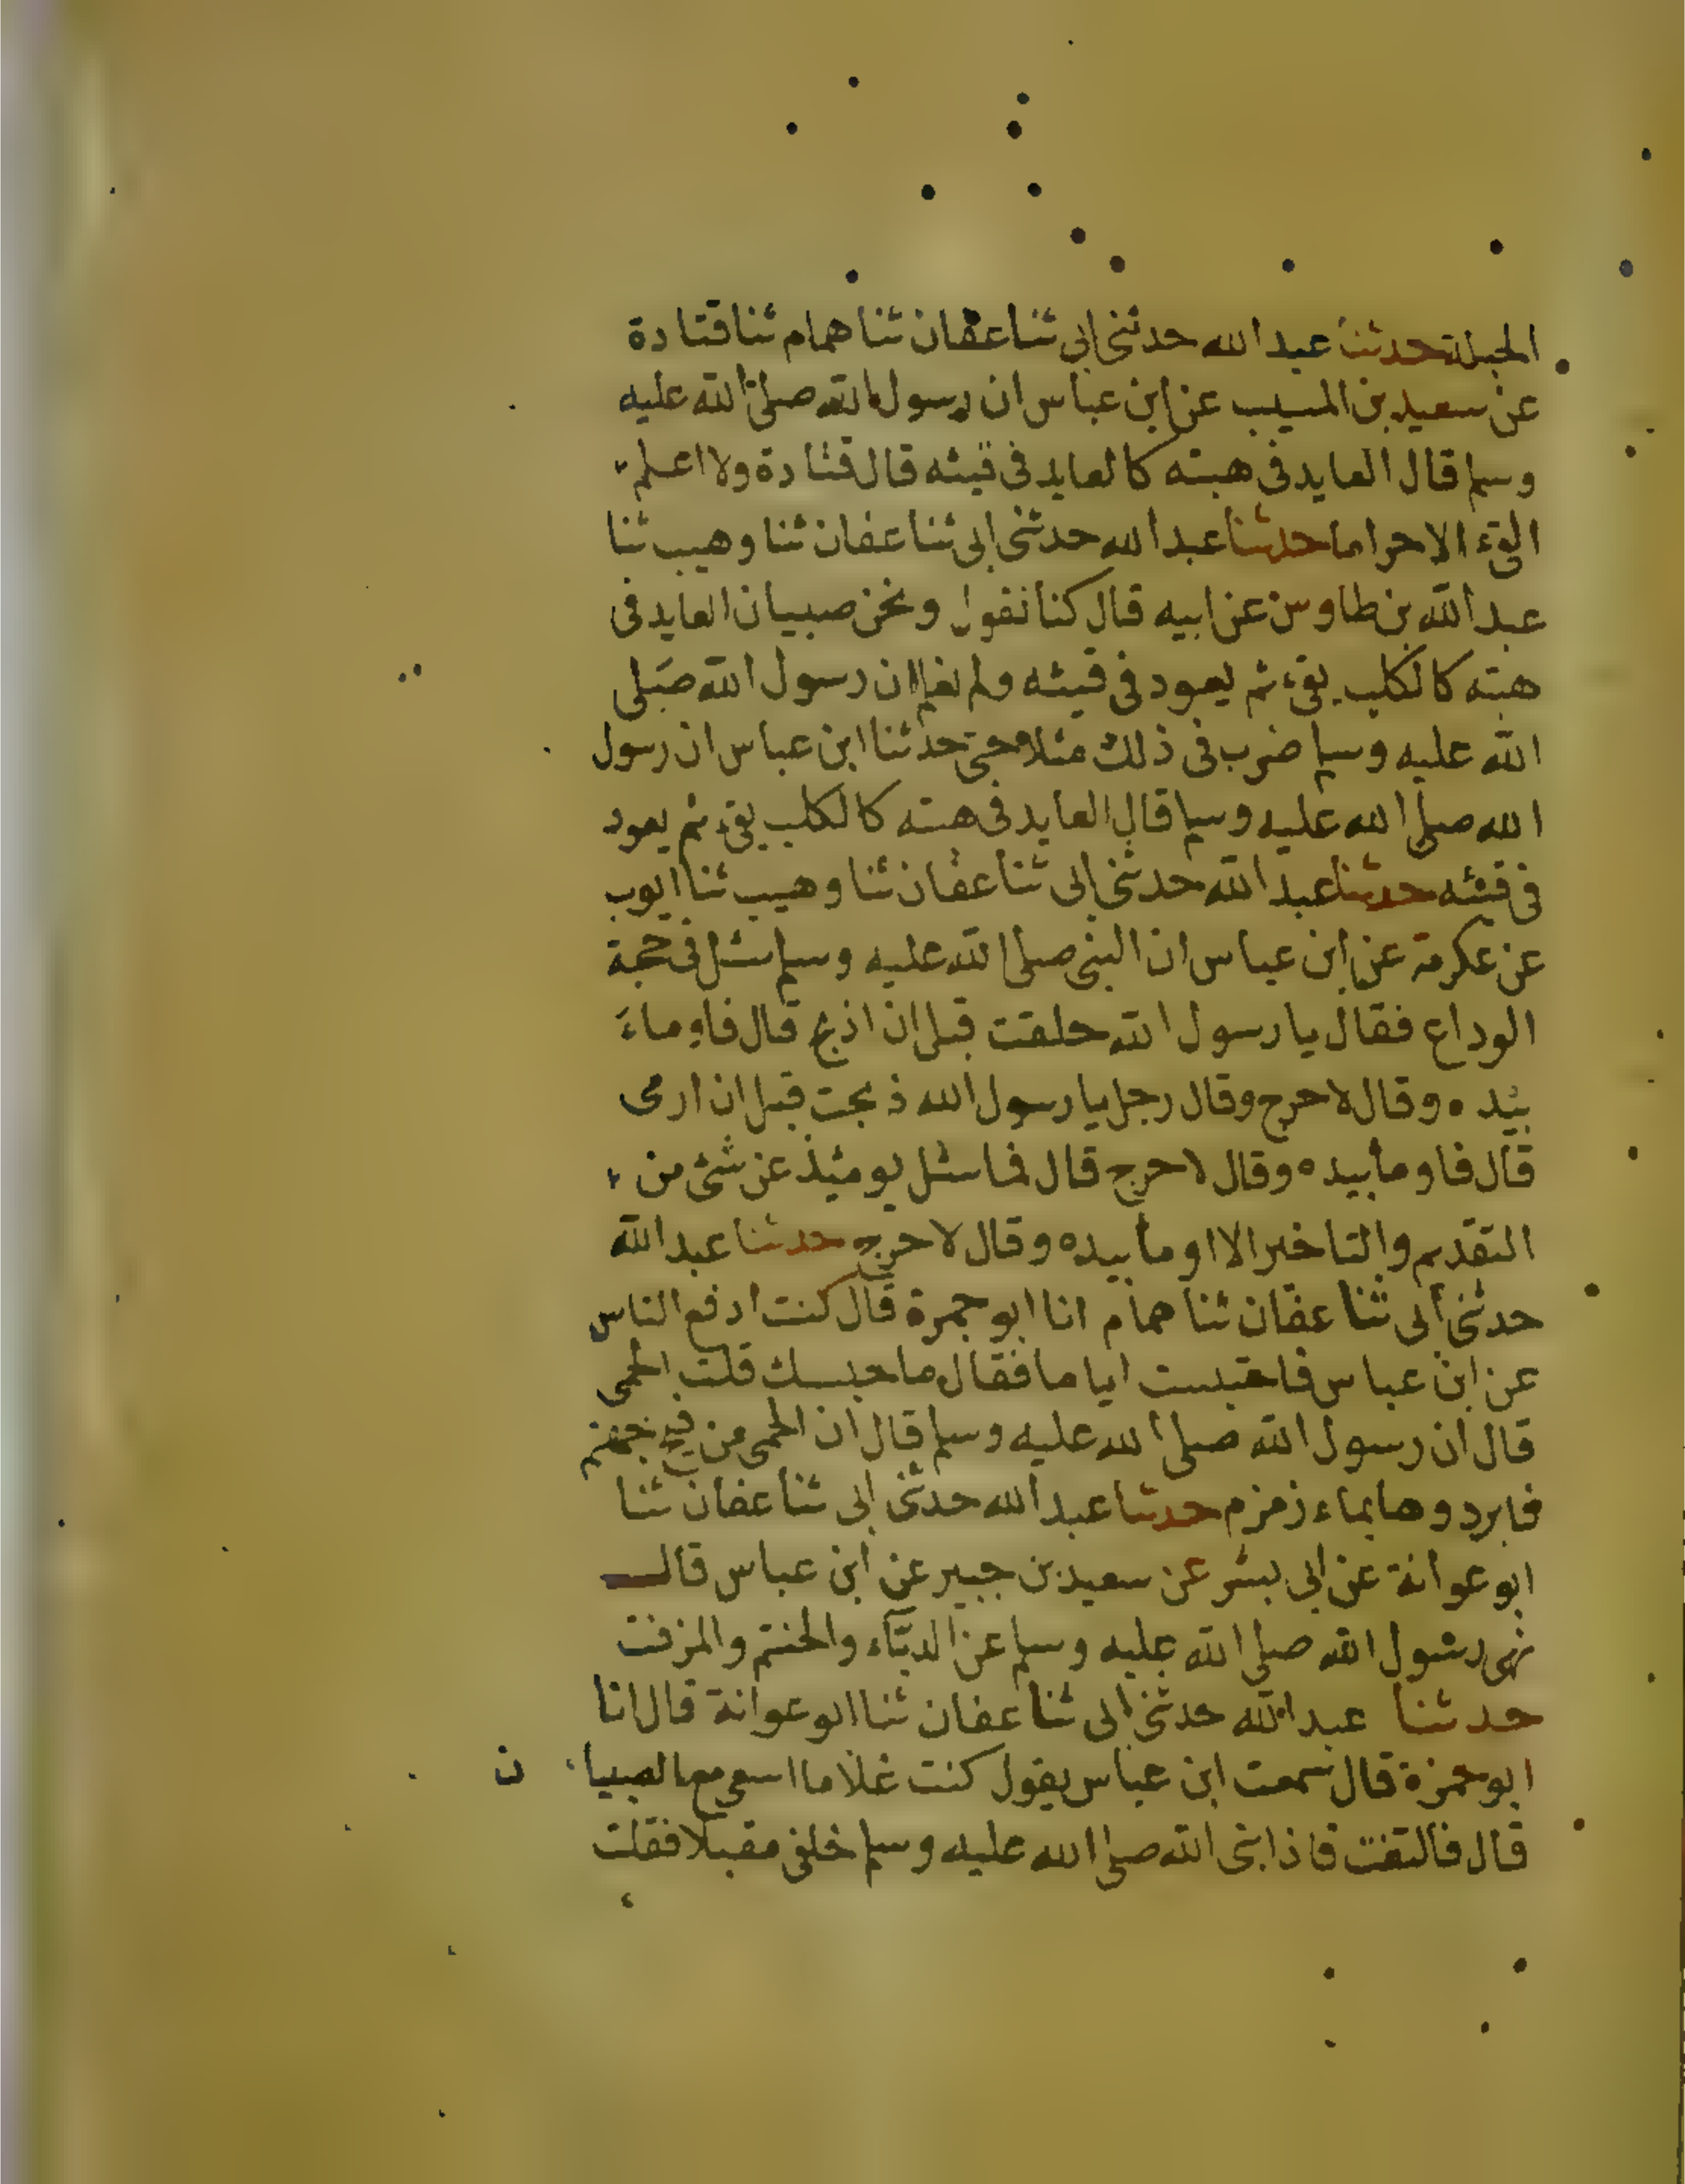 الحبلة حدثنا عبد الله حدثني ابي ثنا عفان ثنا همام ثنا قتادة
عن سعيد بن المسيب عن ابن عباس ان رسول الله صلى الله عليه
وسلم قال العايد في هبته كالعايد في قيئه قال قتادة ولا اعلم
القيء الا حراما حدثنا عبد الله حدثني ابي ثنا عفان ثنا وهيب ثنا
عبد الله بن طاوس عن ابيه قال كنا نقول ونحن صبيان العايد في
هبته كالكلب يقيء ثم يعود في قيئه ولم نعلم ان رسول الله صَلى
الله عليه وسلم ضرب في ذلك مثلا حتى حدثنا ابن عباس ان رسول
الله صلى الله عليه وسلم قال العايد في هبته كالكلب يقيء ثم يعود
في قيئه حدثنا عبد الله حدثني ابي ثنا عفان ثنا وهيب ثنا ايوب
عن عكرمة عن ابن عباس ان النبي صلى الله عليه وسلم سئل في حجة
الوداع فقال يا رسول الله حلقت قبل ان اذبح قال فاوماءَ
بيده وقال لا حرج وقال رجل يا رسول الله ذبحت قبل ان ارمى
قال فاومأ بيده وقال لا حرج قال فما سئل يومئذ عن شئ من
التقديم والتاخير الا اومأ بيده وقال لا حرج حدثنا عبد الله
حدثني أبي ثنا عفان ثنا همام انا ابو جمرة قال كنت ادفع الناس
عن ابن عباس فاحتبست اياما فقال ما حبسك قلت الحمى
قال ان رسول الله صلى الله عليه وسلم قال ان الحمى من فيح جهنم
فابردوها بماء زمزم حدثنا عبد الله حدثني ابي ثنا عفان ثنا
ابو عوانة عن ابي بشر عن سعيد بن جبير عن ابن عباس قال
نهى رسول الله صلى الله عليه وسلم عن الدبّاء والحنتم والمزفت
حدثنا عبد الله حدثني ابي ثنا عفان ثنا ابو عوانة قال انا
ابو حمزة قال سمعت ابن عباس يقول كنت غلاما اسعى مع الصبيان
قال فالتفت فاذا نبى الله صلى الله عليه وسلم خلفي مقبلا فقلت